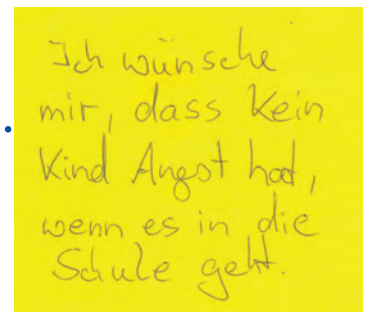 Ich wünsche
mir, dass kein
Kind Angst hat,
wenn es in die
Schule geht.